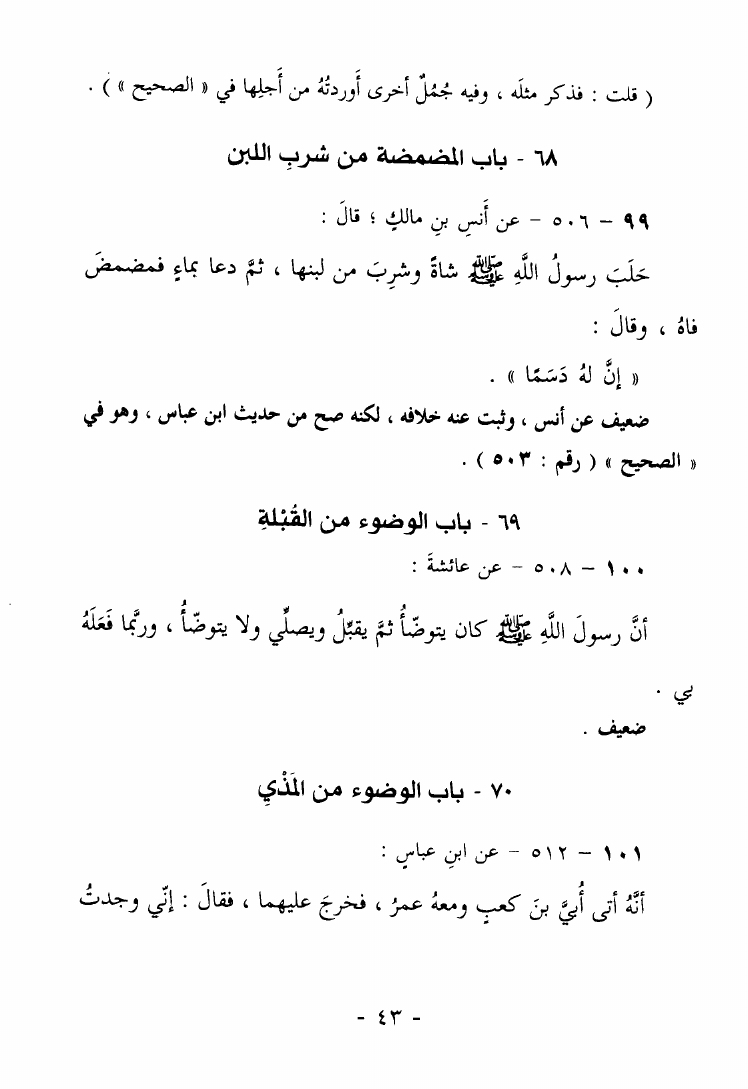 ( قلت : فذكر مثلَه ، وفيه جُمُلٌ أخرى أَوردتُهُ من أَجلِها في « الصحيح » ) .
٦٨ - باب المضمضة من شربِ اللبن
٩٩ – ٥٠٦ – عن أَنسِ بنِ مالكٍ ؛ قالَ :
حَلَبَ رسولُ اللَّهِ ﷺ شاةً وشرِبَ من لبنها ، ثمَّ دعا بماءٍ فمضمضَ
فاهُ ، وقالَ :
« إنَّ لهُ دَسَمًا » .
ضعيف عن أنس ، وثبت عنه خلافه ، لكنه صح من حديث ابن عباس ، وهو في
« الصحيح » ( رقم : ٥٠٣ ) .
٦٩ - باب الوضوء من القُبْلةِ
١٠٠ – ٥٠٨ – عن عائشةَ :
أنَّ رسولَ اللَّهِ ﷺ كان يتوضّأُ ثمَّ يقبِّلُ ويصلِّي ولا يتوضّأُ ، وربَّما فَعَلَهُ
بي .
ضعيف .
٧٠ - باب الوضوء من المَذْيِ
١٠١ – ٥١٢ – عن ابنِ عباسٍ :
أنَّهُ أتى أُبيَّ بنَ كعبٍ ومعهُ عمرُ ، فخرجَ عليهما ، فقالَ : إنّي وجدتُ
- ٤٣ -